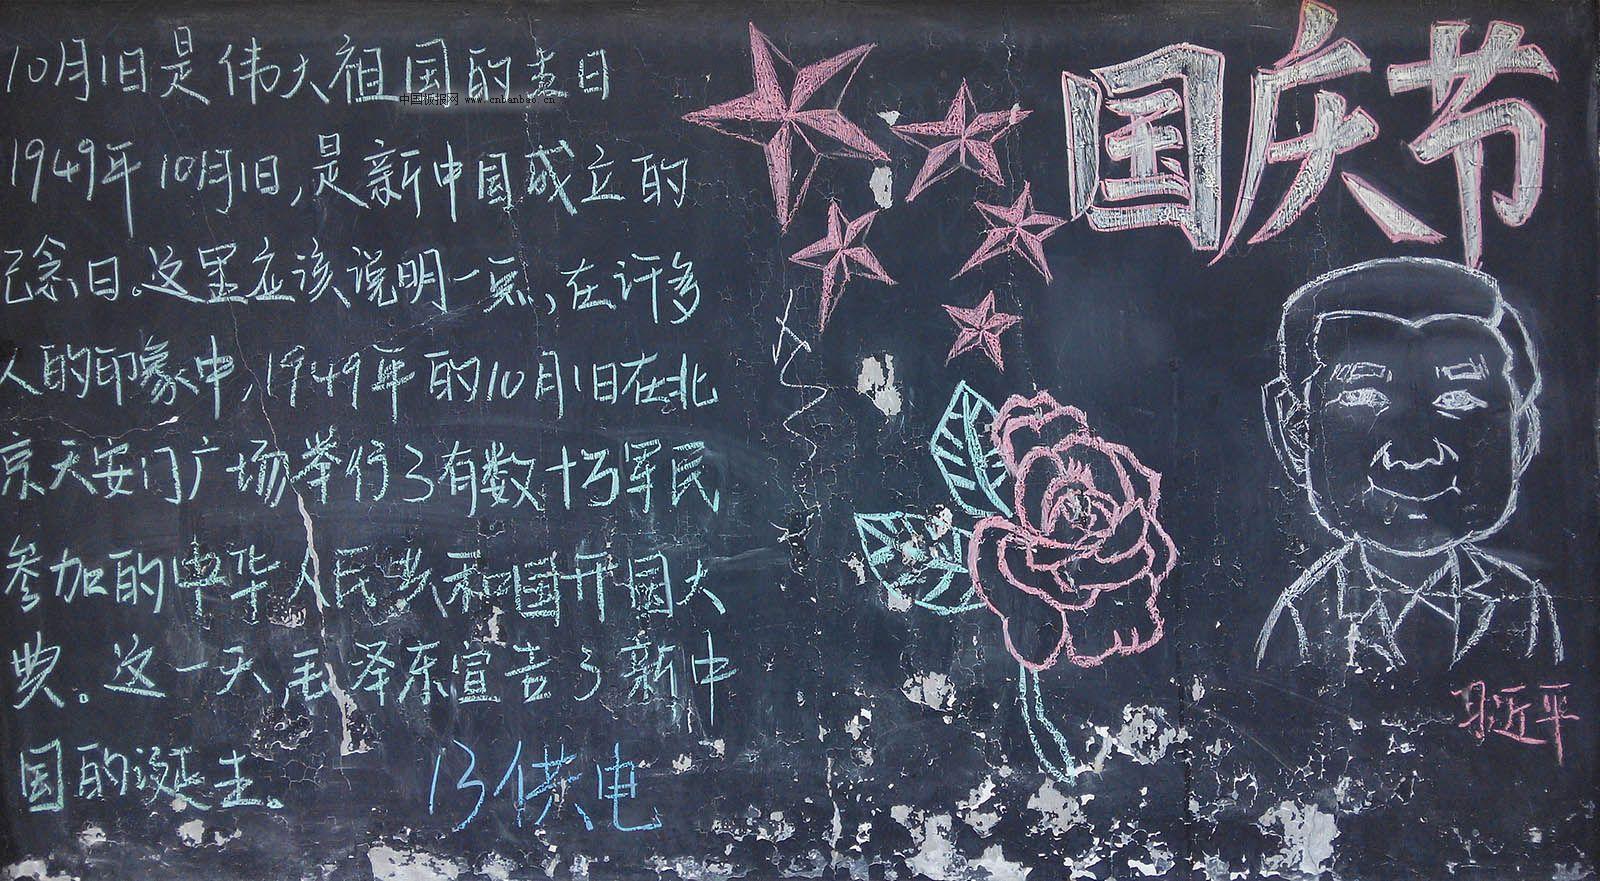 10月1日是伟大祖国的生日
中国板报网 www.cnbanbao.cn
1949年10月1日,是新中国成立的
纪念日。这里应该说明一点,在许多
人的印象中,1949年的10月1日在北
京天安门广场举行了有数十万军民
参加的中华人民共和国开园大
典。这一天毛泽东宣告了新中
国的诞生。
13供电
国庆节
习近平